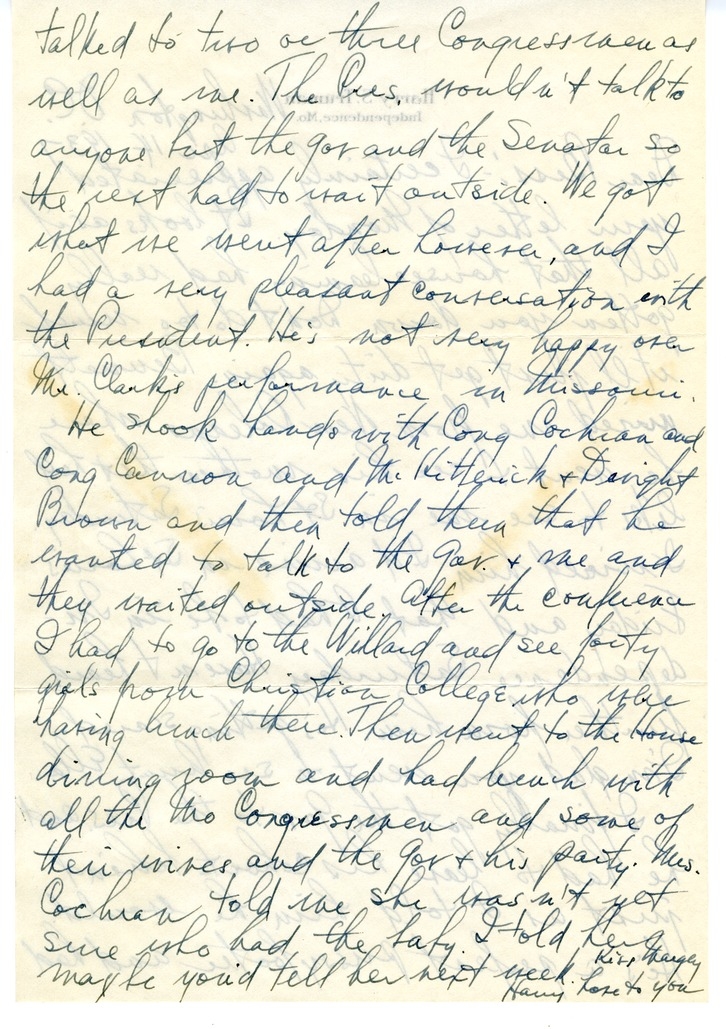 talked to two or three Congressmen as
well as me. The Pres. wouldn't talk to
anyone but the gov and the Senator so
the rest had to wait outside. We got
what we went after however, and I
had a very pleasant conversation with
the President. He's not very happy over
Mr. Clark's performance in Missouri.
He shook hands with Cong Cochran and
Cong Cannon and Mr. Kitterick & Dwight
Brown and then told them that he
wanted to talk to the Gov. & me and
they waited outside. After the conference
I had to go to the Willard and see forty
girls from Christian College who were
having lunch there. Then went to the House
dining room and had lunch with
all the Mo Congressmen and some of
their wives and the Gov & his party. Mrs.
Cochran told me she wasn't yet
sure who had the baby. I told her
maybe you'd tell her next week.
Kiss Margey
love to you
Harry.